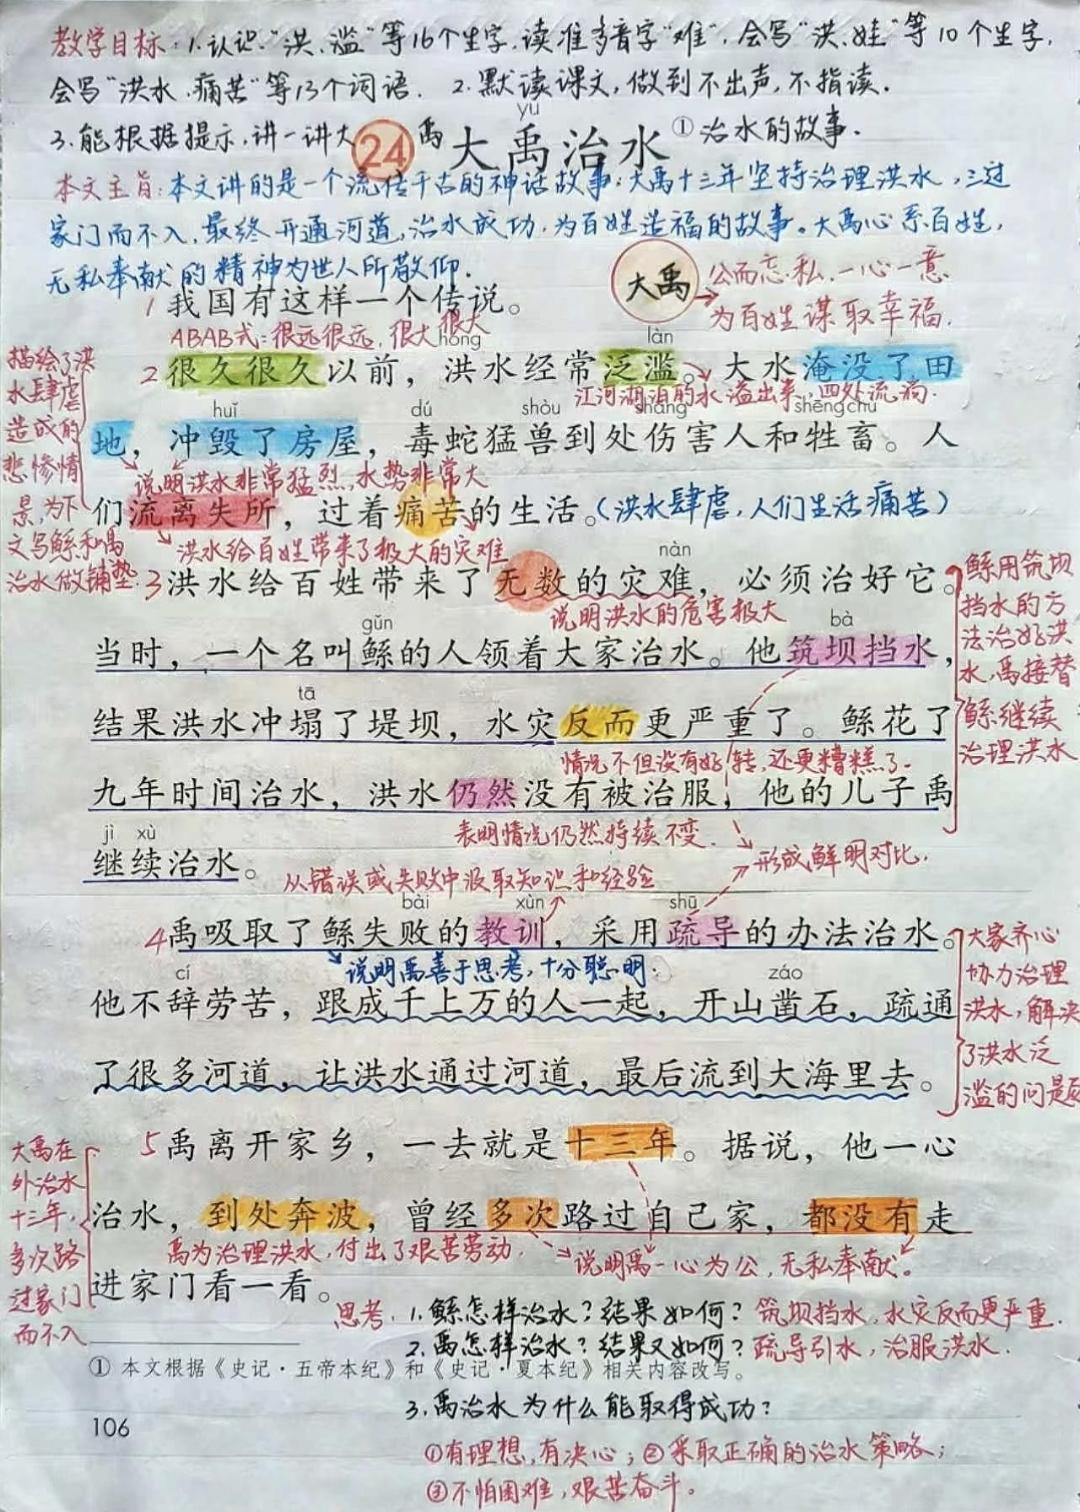 教学目标:1.认识“洪、滥”等16个生字,读准多音字“难”,会写“洪、娃”等10个生字,
会写“洪水、痛苦”等13个词语. 2.默读课文,做到不出声,不指读.
3.能根据提示,讲一讲大禹治水的故事.
yǔ
24 大禹治水①
本文主旨:本文讲的是一个流传千古的神话故事:大禹十三年坚持治理洪水,三过
家门而不入,最终开通河道,治水成功,为百姓造福的故事。大禹心系百姓,
无私奉献的精神为世人所敬仰.
大禹
公而忘私,一心一意
为百姓谋取幸福.
1我国有这样一个传说。
ABAB式:很远很远,很大很大
hóng làn
2很久很久以前,洪水经常泛滥。大水淹没了田
江河湖泊的水溢出来,四处流淌.
huǐ dú shòu shāng shēngchù
地,冲毁了房屋,毒蛇猛兽到处伤害人和牲畜。人
说明洪水非常猛烈,水势非常大
们流离失所,过着痛苦的生活。(洪水肆虐,人们生活痛苦)
洪水给百姓带来了极大的灾难
描绘了洪
水肆虐
造成的
悲惨情
景,为下
文写鲧和禹
治水做铺垫.
nàn
3洪水给百姓带来了无数的灾难,必须治好它。
说明洪水的危害极大
gǔn bà
当时,一个名叫鲧的人领着大家治水。他筑坝挡水,
tā
结果洪水冲塌了堤坝,水灾反而更严重了。鲧花了
情况不但没有好转,还更糟糕了.
九年时间治水,洪水仍然没有被治服,他的儿子禹
jì xù
表明情况仍然持续不变.
继续治水。
形成鲜明对比.
鲧用筑坝
挡水的方
法治好洪
水,禹接替
鲧继续
治理洪水
从错误或失败中汲取知识和经验
bài xùn shū
4禹吸取了鲧失败的教训,采用疏导的办法治水。
说明禹善于思考,十分聪明.
cí záo
他不辞劳苦,跟成千上万的人一起,开山凿石,疏通
了很多河道,让洪水通过河道,最后流到大海里去。
大家齐心
协力治理
洪水,解决
了洪水泛
滥的问题
5禹离开家乡,一去就是十三年。据说,他一心
治水,到处奔波,曾经多次路过自己家,都没有走
禹为治理洪水,付出了艰苦劳动.
说明禹一心为公,无私奉献。
进家门看一看。
大禹在
外治水
十三年,
多次路
过家门
而不入
思考:1.鲧怎样治水?结果如何?筑坝挡水,水灾反而更严重.
2.禹怎样治水?结果又如何?疏导引水,治服洪水.
① 本文根据《史记·五帝本纪》和《史记·夏本纪》相关内容改写。
3.禹治水为什么能取得成功?
106
①有理想,有决心;②采取正确的治水策略;
③不怕困难,艰苦奋斗。